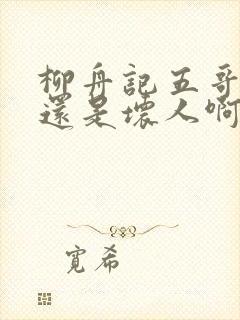 柳舟記五哥
還是壞人啊
寬希